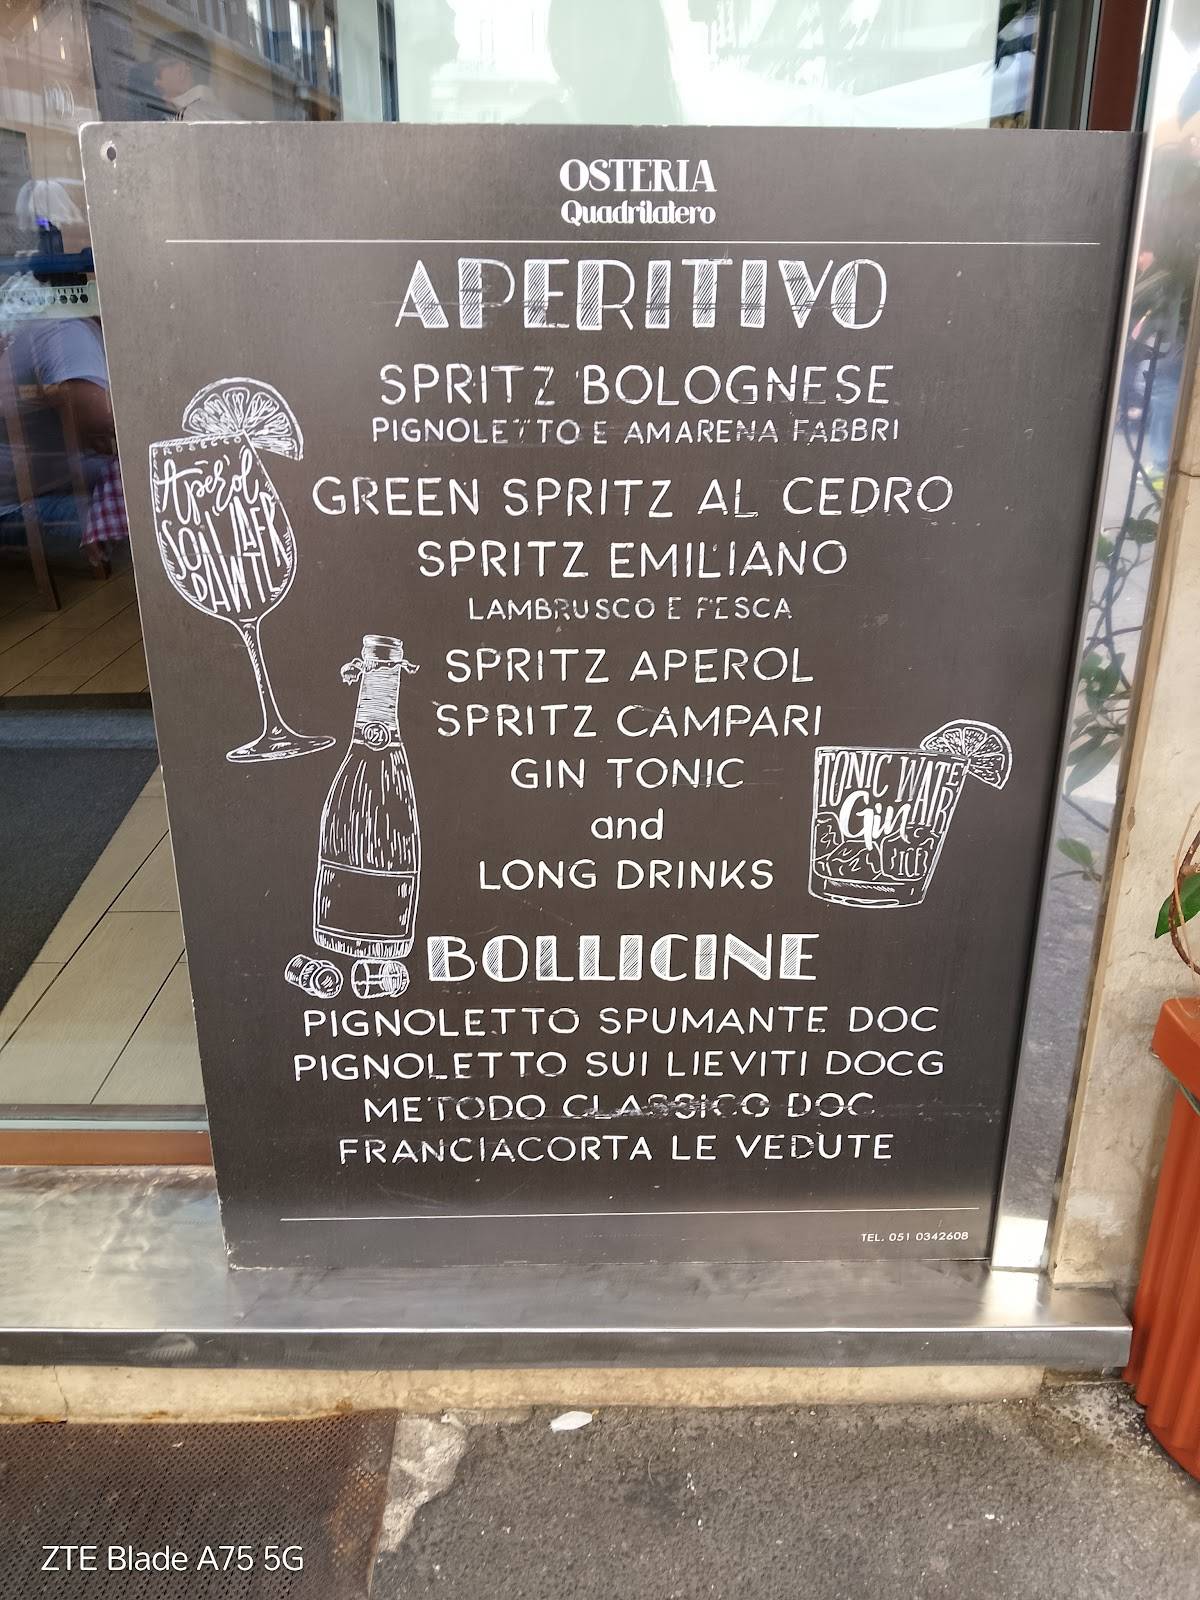 OSTERIA
Quadrilatero
APERITIVO
SPRITZ BOLOGNESE
PIGNOLETTO E AMARENA FABBRI
GREEN SPRITZ AL CEDRO
SPRITZ EMILIANO
LAMBRUSCO E PESCA
SPRITZ APEROL
SPRITZ CAMPARI
GIN TONIC
and
LONG DRINKS
PROSECCO
Aperol
SODA WATER
051
TONIC WATER
Gin
ICE
BOLLICINE
PIGNOLETTO SPUMANTE DOC
PIGNOLETTO SUI LIEVITI DOCG
METODO CLASSICO DOC
FRANCIACORTA LE VEDUTE
TEL. 051 0342608
ZTE Blade A75 5G